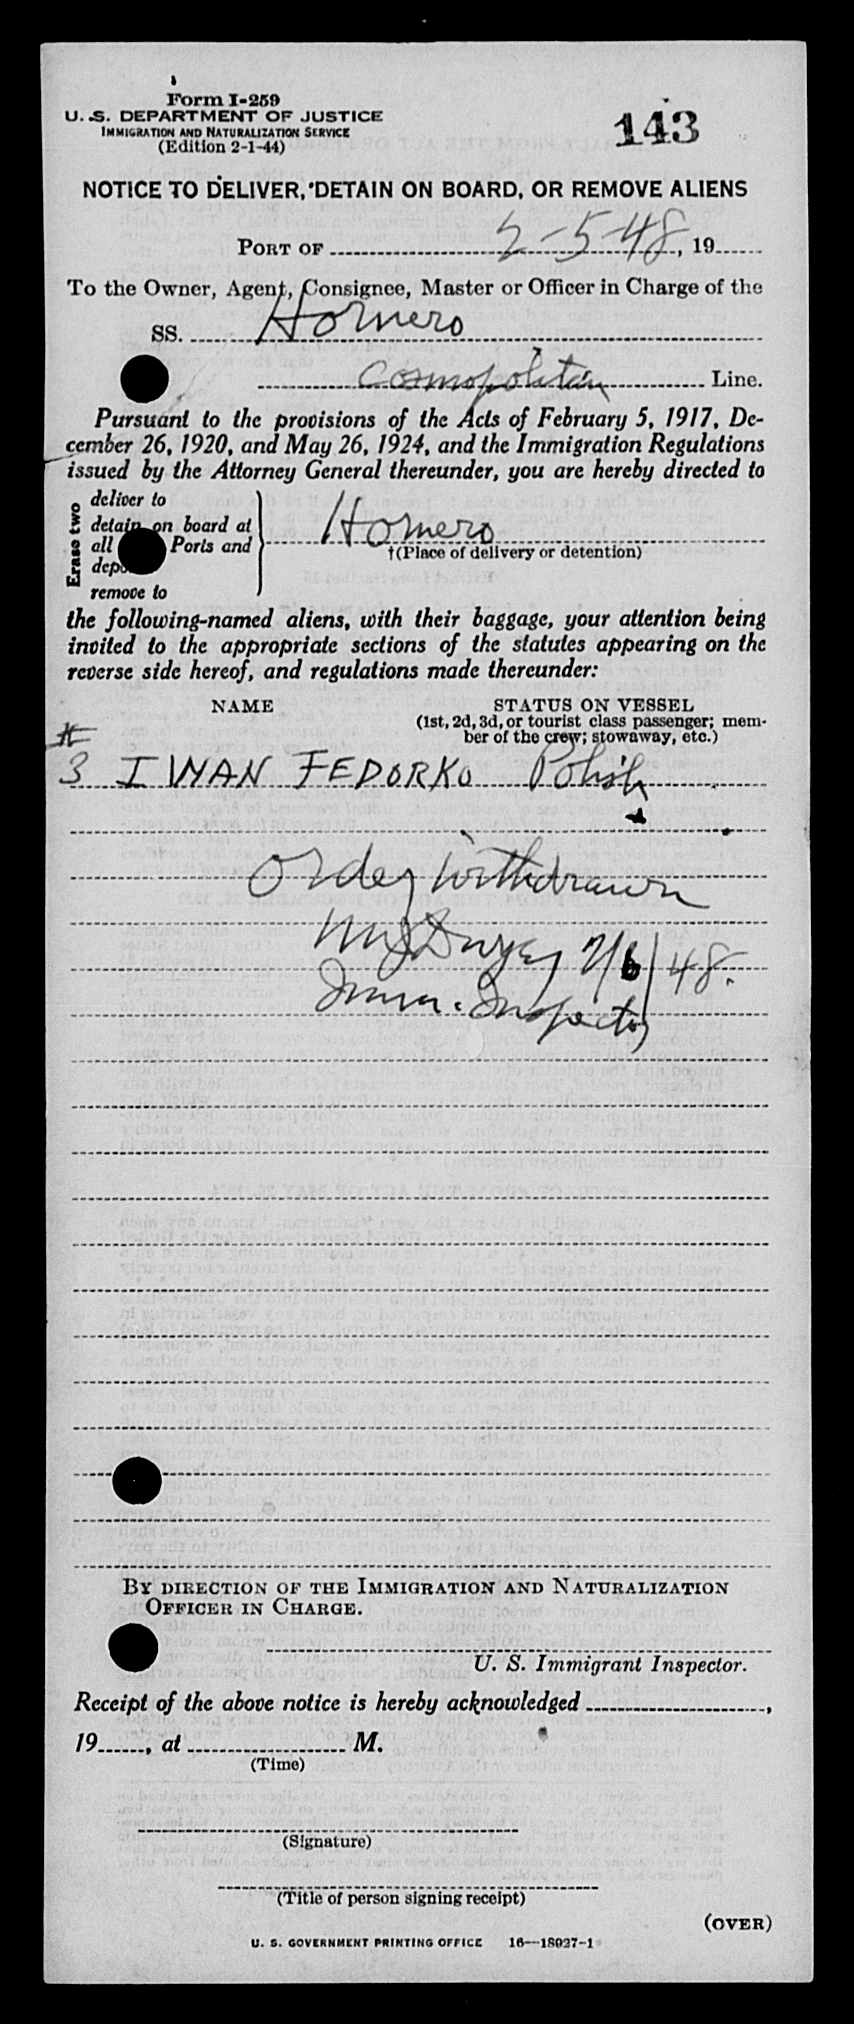 Form I-259
U. S. DEPARTMENT OF JUSTICE
IMMIGRATION AND NATURALIZATION SERVICE
(Edition 2-1-44)
143
NOTICE TO DELIVER, DETAIN ON BOARD, OR REMOVE ALIENS
PORT OF 2-5-48, 19
To the Owner, Agent, Consignee, Master or Officer in Charge of the
SS. Homero
Cosmopolitan Line.
Pursuant to the provisions of the Acts of February 5, 1917, De-
cember 26, 1920, and May 26, 1924, and the Immigration Regulations
issued by the Attorney General thereunder, you are hereby directed to
Erase two
deliver to
detain on board at
all Ports and
depo
remove to
Homero
†(Place of delivery or detention)
the following-named aliens, with their baggage, your attention being
invited to the appropriate sections of the statutes appearing on the
reverse side hereof, and regulations made thereunder:
NAME STATUS ON VESSEL
(1st, 2d, 3d, or tourist class passenger; mem-
ber of the crew; stowaway, etc.)
#
3 IWAN FEDORKO Polish
Order Withdrawn
2/6/48.
Imm. Inspector
BY DIRECTION OF THE IMMIGRATION AND NATURALIZATION
OFFICER IN CHARGE.
U. S. Immigrant Inspector.
Receipt of the above notice is hereby acknowledged ,
19 , at M.
(Time)
(Signature)
(Title of person signing receipt)
(OVER)
U. S. GOVERNMENT PRINTING OFFICE 16—18027-1